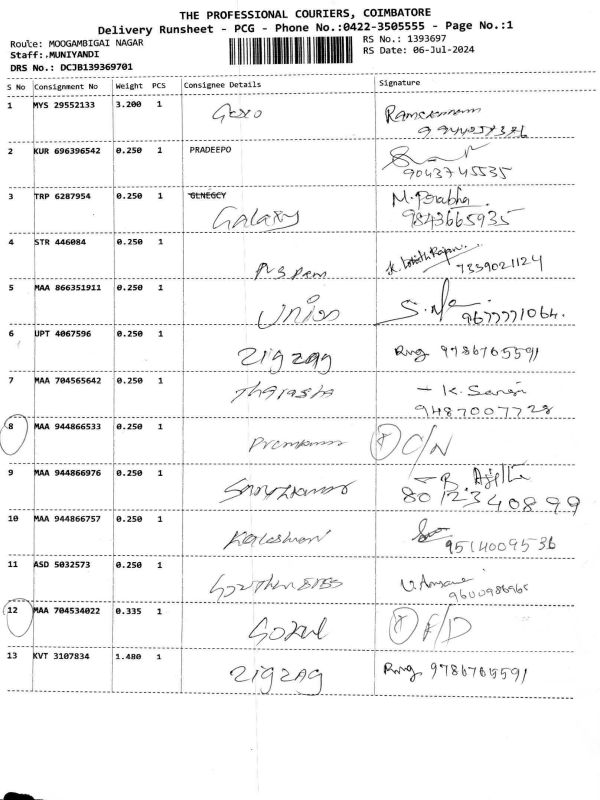 THE PROFESSIONAL COURIERS, COIMBATORE
Delivery Runsheet - PCG - Phone No.:0422-3505555 - Page No.:1
Route: MOOGAMBIGAI NAGAR
RS No.: 1393697
Staff:.MUNIYANDI
RS Date: 06-Jul-2024
DRS No.: DCJB139369701
S No Consignment No Weight PCS Consignee Details Signature
1 MYS 29552133 3.200 1
2 KUR 696396542 0.250 1 PRADEEPO
9043745535
3 TRP 6287954 0.250 1 GLNEGCY M. Prabha
Galaxy 9843665935
4 STR 446084 0.250 1
7339021124
5 MAA 866351911 0.250 1
Union 9677771064.
6 UPT 4067596 0.250 1
zigzag 9786765591
7 MAA 704565642 0.250 1
Tharasha - K. Sangi
9487007728
8 MAA 944866533 0.250 1
Premkumar C/N
9 MAA 944866976 0.250 1
8012340899
10 MAA 944866757 0.250 1
9514009536
11 ASD 5032573 0.250 1
12 MAA 704534022 0.335 1
Gokul F/D
13 KVT 3107834 1.480 1
zigzag 9786765591